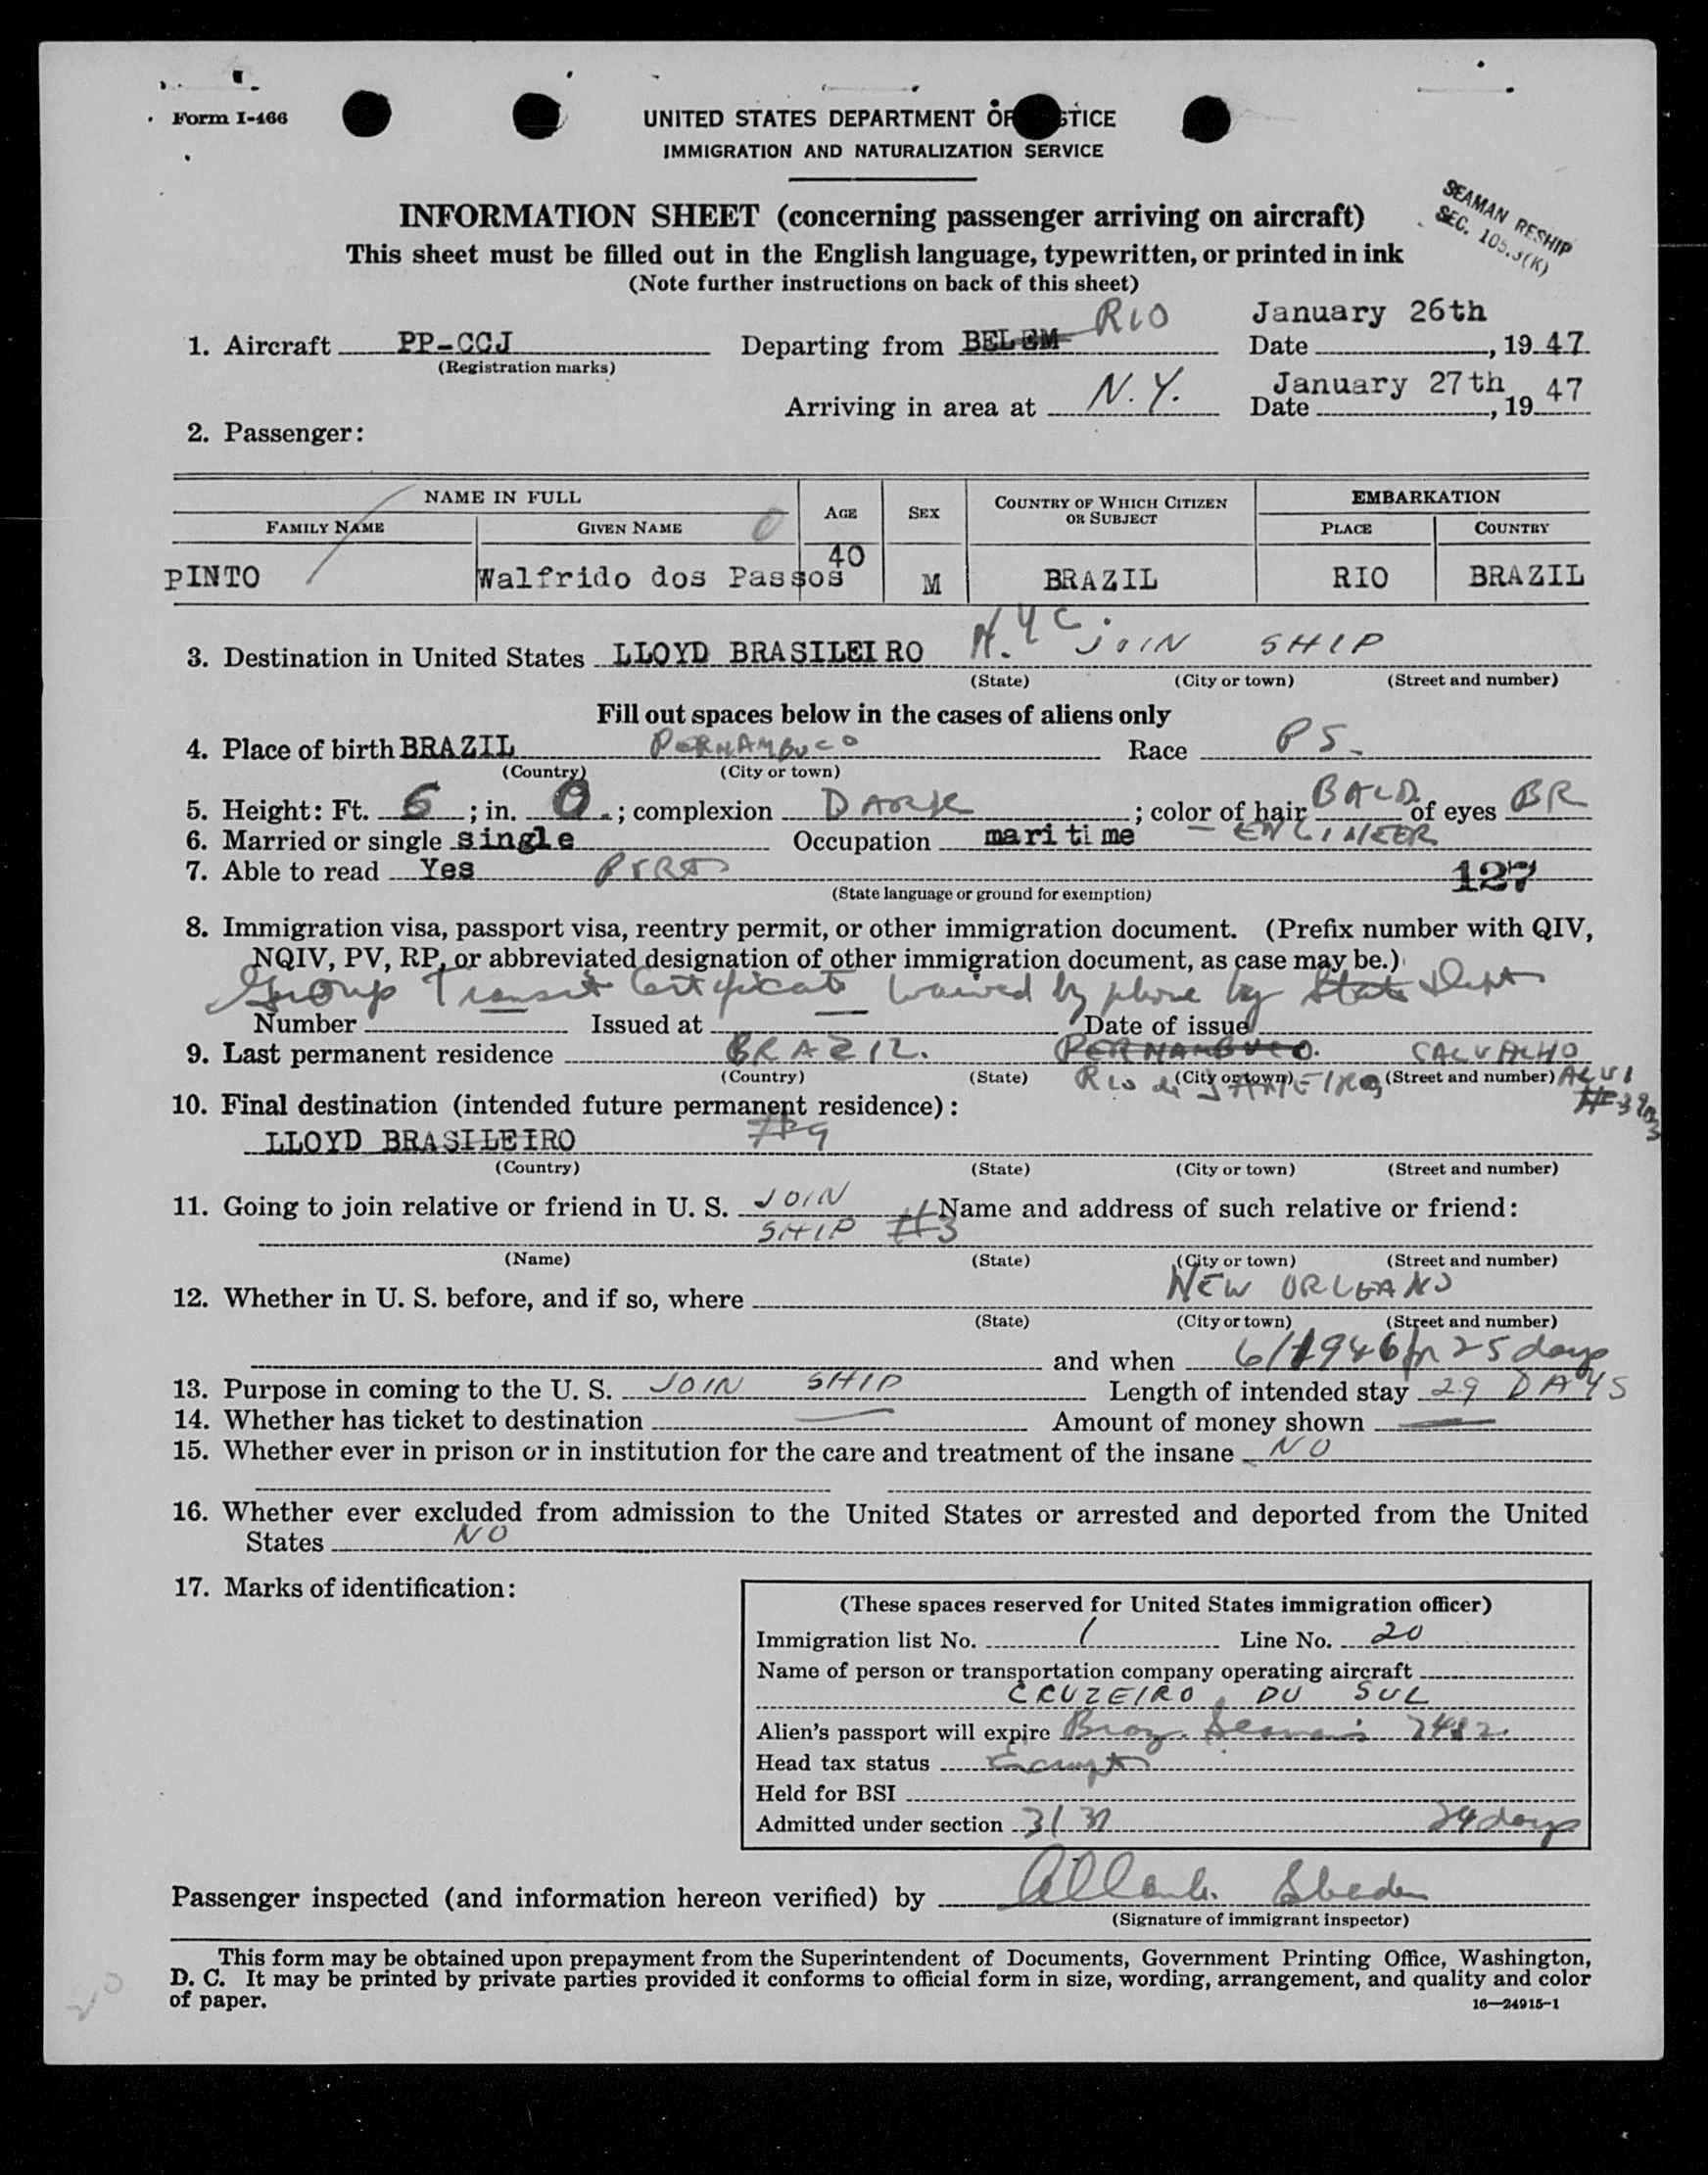 Form I-466
UNITED STATES DEPARTMENT OF STICE
IMMIGRATION AND NATURALIZATION SERVICE
INFORMATION SHEET (concerning passenger arriving on aircraft)
SEAMAN RESHIP
SEC. 105.3(K)
This sheet must be filled out in the English language, typewritten, or printed in ink
(Note further instructions on back of this sheet)
1. Aircraft PP-CCJ Departing from BELEM RIO Date January 26th, 1947
(Registration marks)
Arriving in area at N.Y. Date January 27th, 1947
2. Passenger:
NAME IN FULL AGE SEX COUNTRY OF WHICH CITIZEN OR SUBJECT EMBARKATION
FAMILY NAME GIVEN NAME PLACE COUNTRY
PINTO Walfrido dos Passos 40 M BRAZIL RIO BRAZIL
3. Destination in United States LLOYD BRASILEIRO N.Y.C. JOIN SHIP
(State) (City or town) (Street and number)
Fill out spaces below in the cases of aliens only
4. Place of birth BRAZIL PERNAMBUCO Race PS.
(Country) (City or town)
5. Height: Ft. 6; in. 0.; complexion DARK; color of hair BALD of eyes BR
6. Married or single single Occupation maritime - ENGINEER
7. Able to read Yes PORT 127
(State language or ground for exemption)
8. Immigration visa, passport visa, reentry permit, or other immigration document. (Prefix number with QIV,
NQIV, PV, RP, or abbreviated designation of other immigration document, as case may be.)
Group Transit Certificate waived by phone by State Dept
Number Issued at Date of issue
9. Last permanent residence BRAZIL. PERNAMBUCO. CALVALHO
(Country) (State) Rio de JANEIRO (City or town) (Street and number) ALVI
10. Final destination (intended future permanent residence):
LLOYD BRASILEIRO #9
(Country) (State) (City or town) (Street and number)
11. Going to join relative or friend in U. S. JOIN SHIP #3 Name and address of such relative or friend:
(Name) (State) (City or town) (Street and number)
12. Whether in U. S. before, and if so, where NEW ORLEANS
(State) (City or town) (Street and number)
and when 6/1946 for 25 days
13. Purpose in coming to the U. S. JOIN SHIP Length of intended stay 29 DAYS
14. Whether has ticket to destination — Amount of money shown —
15. Whether ever in prison or in institution for the care and treatment of the insane NO
16. Whether ever excluded from admission to the United States or arrested and deported from the United
States NO
17. Marks of identification:
(These spaces reserved for United States immigration officer)
Immigration list No. 1 Line No. 20
Name of person or transportation company operating aircraft
CRUZEIRO DU SUL
Alien's passport will expire Braz. Seaman's 2482
Head tax status Exempt
Held for BSI
Admitted under section 3(3) 29 days
Passenger inspected (and information hereon verified) by
(Signature of immigrant inspector)
This form may be obtained upon prepayment from the Superintendent of Documents, Government Printing Office, Washington,
D. C. It may be printed by private parties provided it conforms to official form in size, wording, arrangement, and quality and color
of paper.
16—24915-1
20